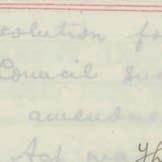 solution fo
Council su
amendme
Act